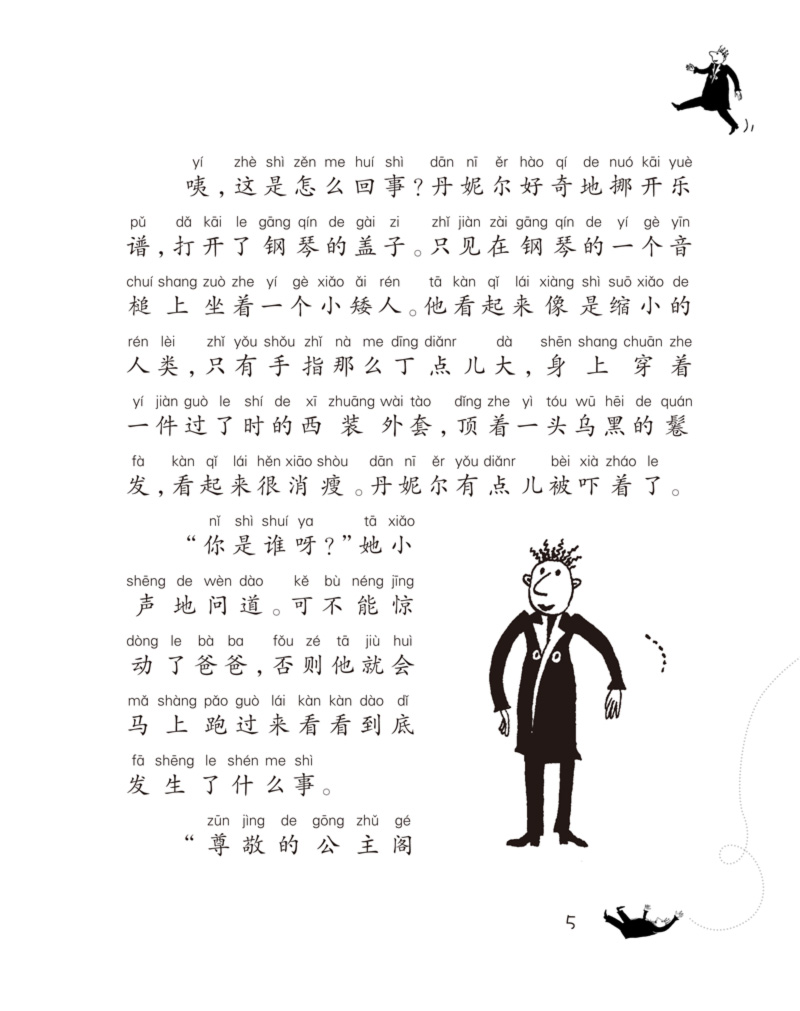 yí zhè shì zěn me huí shì dān nī ěr hào qí de nuó kāi yuè
咦，这是怎么回事？丹妮尔好奇地挪开乐
pǔ dǎ kāi le gāng qín de gài zi zhǐ jiàn zài gāng qín de yí gè yīn
谱，打开了钢琴的盖子。只见在钢琴的一个音
chuí shang zuò zhe yí gè xiǎo ǎi rén tā kàn qǐ lái xiàng shì suō xiǎo de
槌上坐着一个小矮人。他看起来像是缩小的
rén lèi zhǐ yǒu shǒu zhǐ nà me dīng diǎnr dà shēn shang chuān zhe
人类，只有手指那么丁点儿大，身上穿着
yí jiàn guò le shí de xī zhuāng wài tào dǐng zhe yì tóu wū hēi de quán
一件过了时的西装外套，顶着一头乌黑的鬈
fà kàn qǐ lái hěn xiāo shòu dān nī ěr yǒu diǎnr bèi xià zháo le
发，看起来很消瘦。丹妮尔有点儿被吓着了。
nǐ shì shuí ya tā xiǎo
“你是谁呀？”她小
shēng de wèn dào kě bù néng jīng
声地问道。可不能惊
dòng le bà ba fǒu zé tā jiù huì
动了爸爸，否则他就会
mǎ shàng pǎo guò lái kàn kàn dào dǐ
马上跑过来看看到底
fā shēng le shén me shì
发生了什么事。
zūn jìng de gōng zhǔ gé
“尊敬的公主阁
5